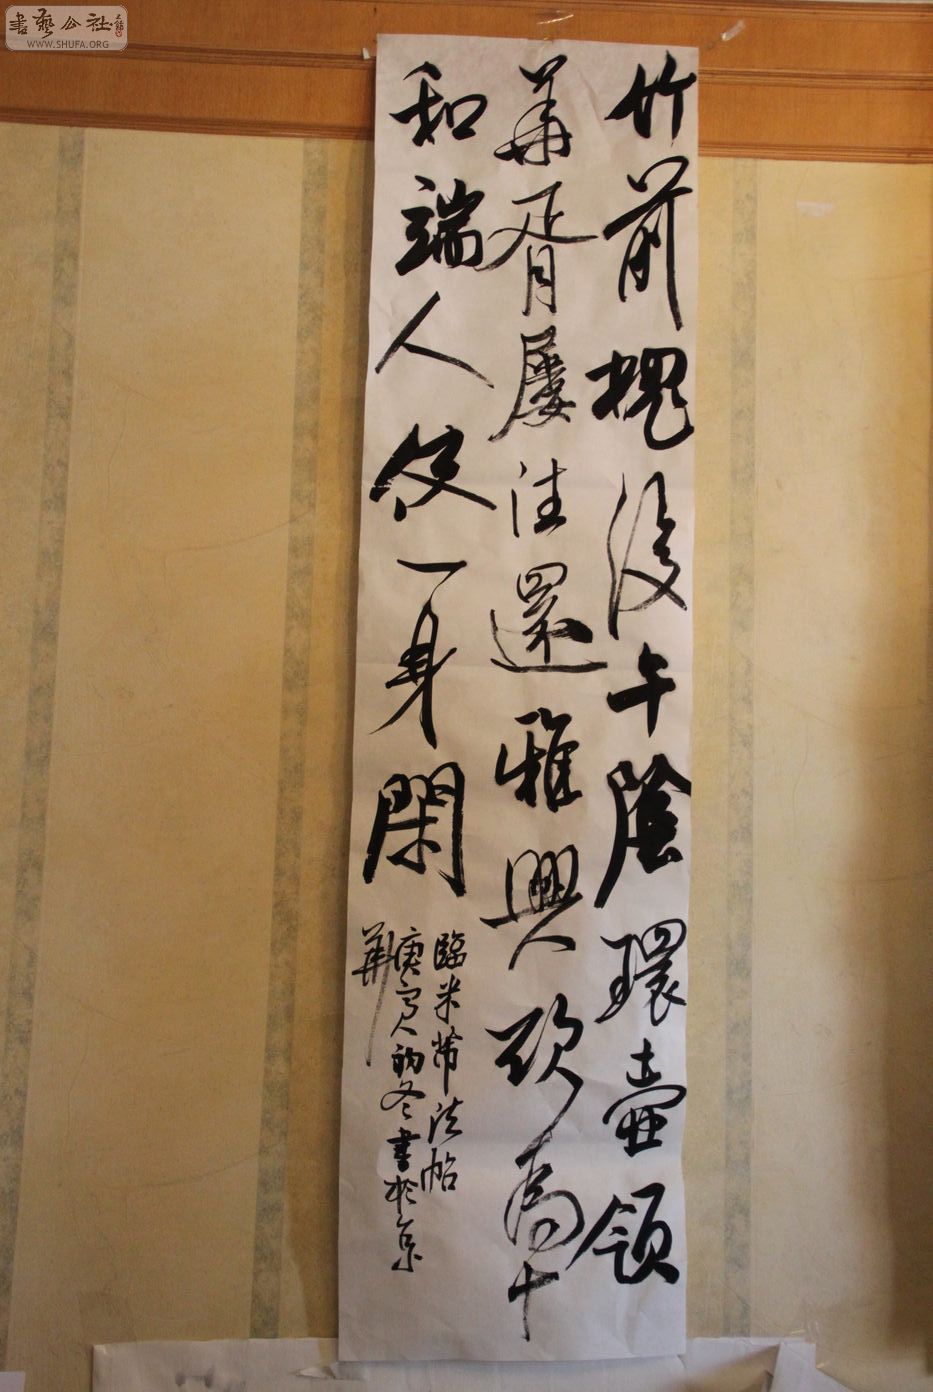 竹前槐後午陰環壺領
華胥屢往還雅興欲為十
和端人使一身閑
臨米芾法帖
庚寅初冬書於京
華
書藝公社
WWW.SHUFA.ORG